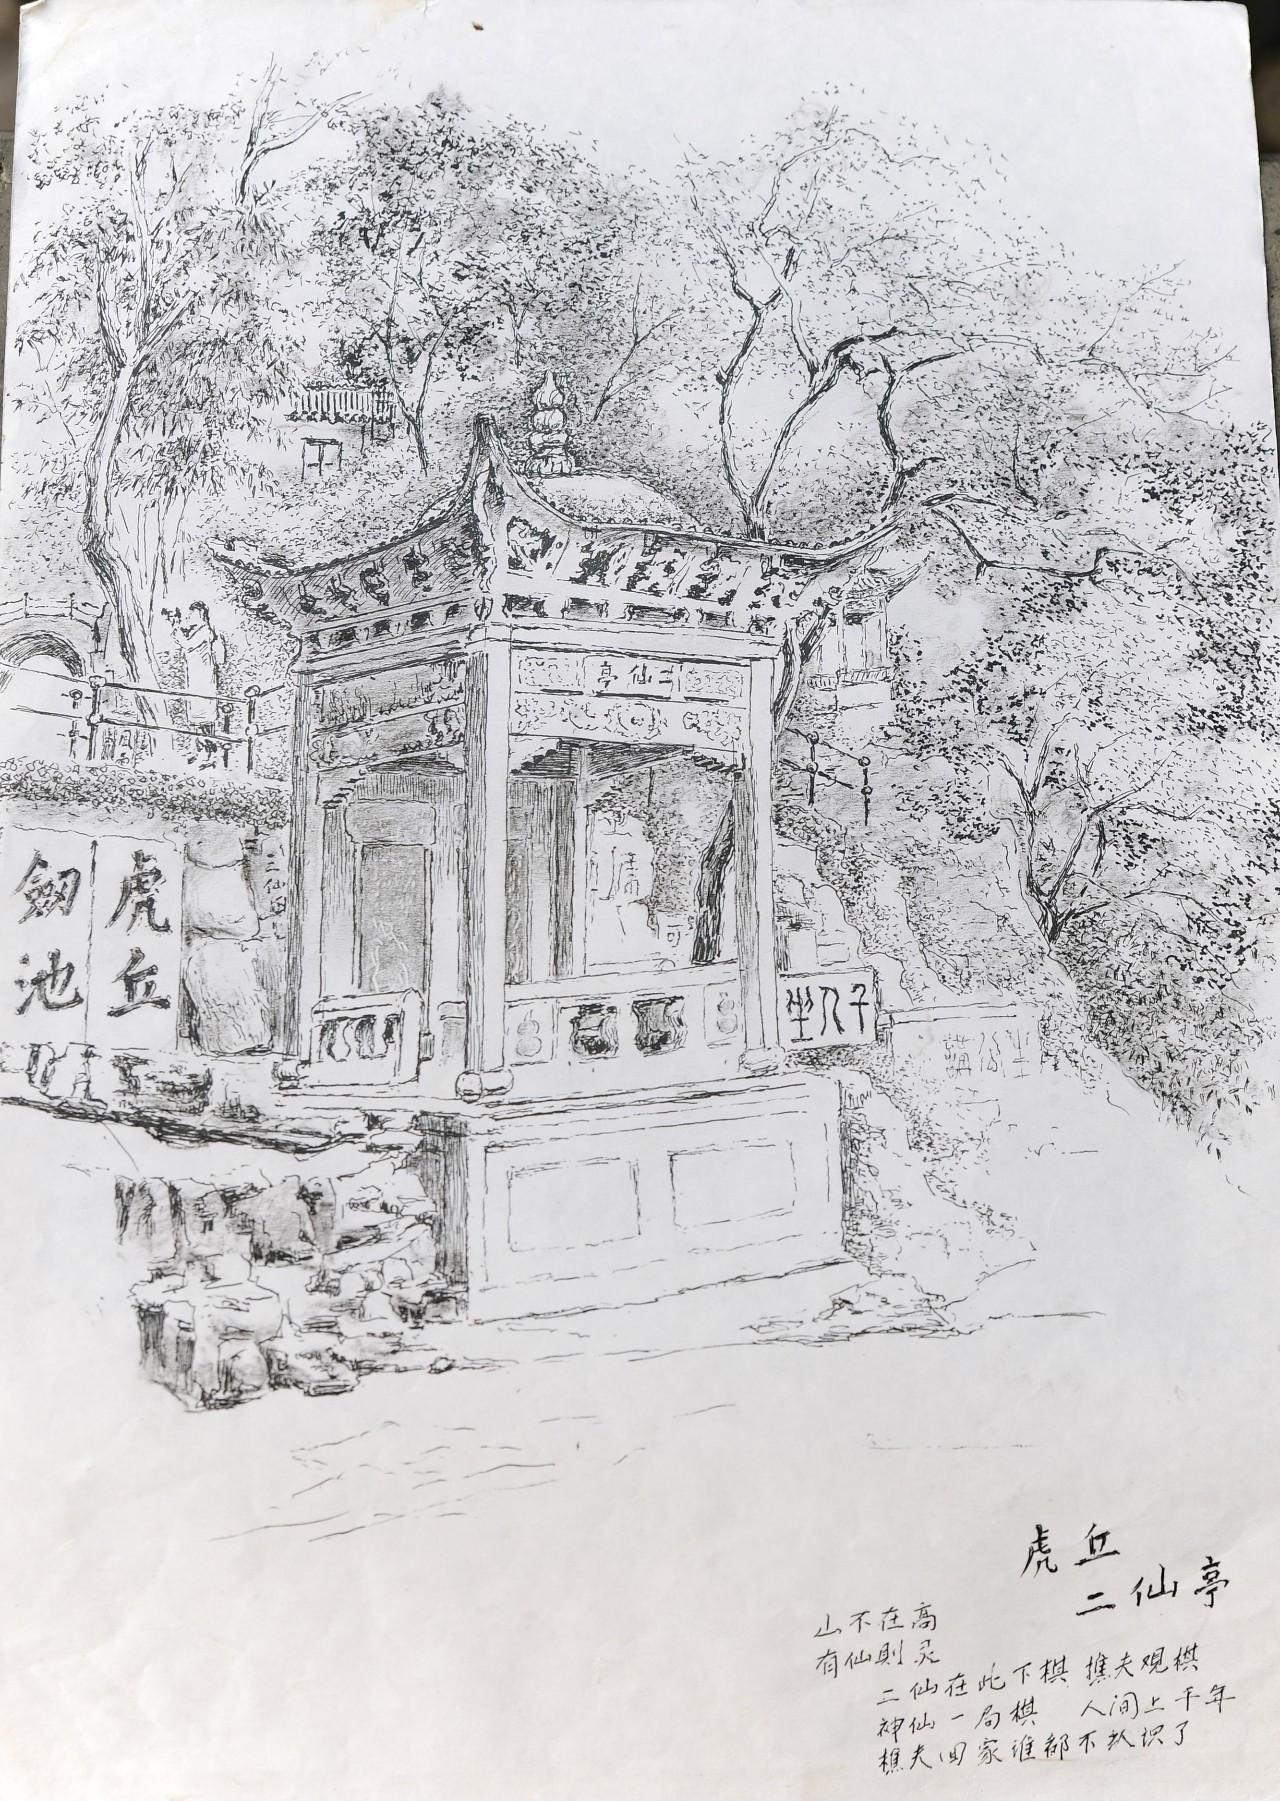 二仙亭
虎丘
劍池
二仙
可
坐
人
子
講
虎丘
二仙亭
山不在高
有仙則灵
二仙在此下棋 樵夫观棋
神仙一局棋 人间上千年
樵夫回家谁都不认识了